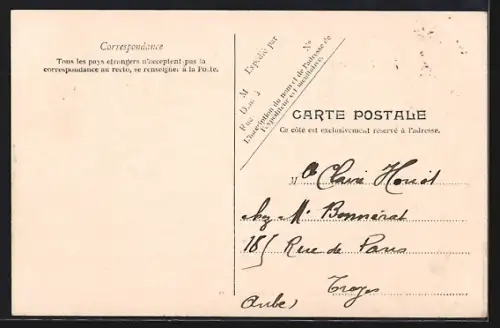 Correspondance
Tous les pays étrangers n'acceptent pas la
correspondance au recto, se renseigner à la Poste.
Expédié par
M
Rue
N°
L'inscription du nom et de l'adresse de
l'expéditeur est facultative.
CARTE POSTALE
Ce côté est exclusivement réservé à l'adresse.
M Claire
chez M. Bonnérat
18 Rue de Paris
Troyes
Aube)